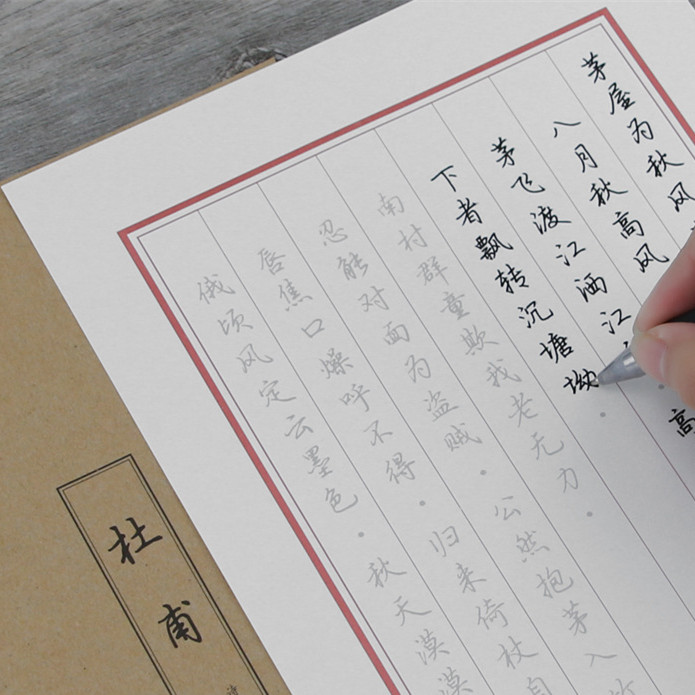 茅屋为秋风
八月秋高风
茅飞渡江洒江 高
下者飘转沉塘坳·
南村群童欺我老无力·
忍能对面为盗贼·公然抱茅入
唇焦口燥呼不得·归来倚杖自
俄顷风定云墨色·秋天漠漠
杜甫